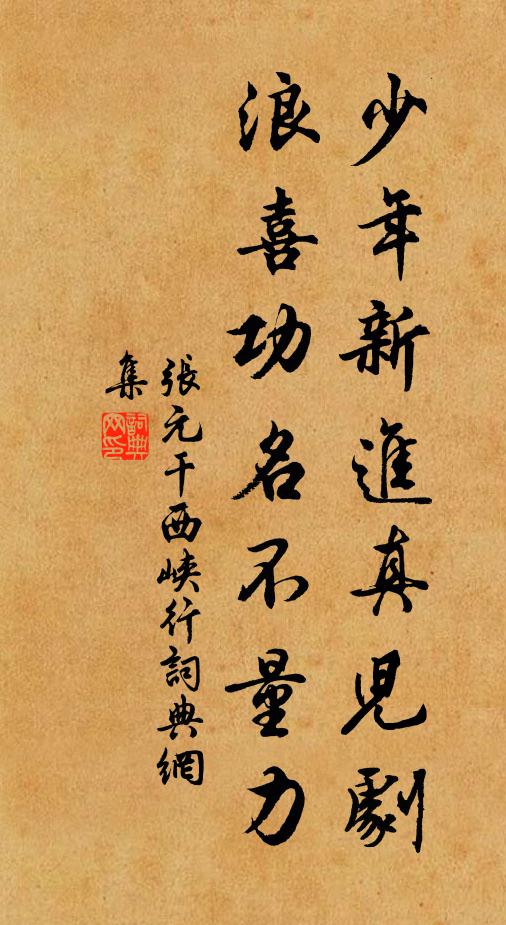 少年新進真兒劇
浪喜功名不量力
張元干西峽行詞典網
集
詞典網印